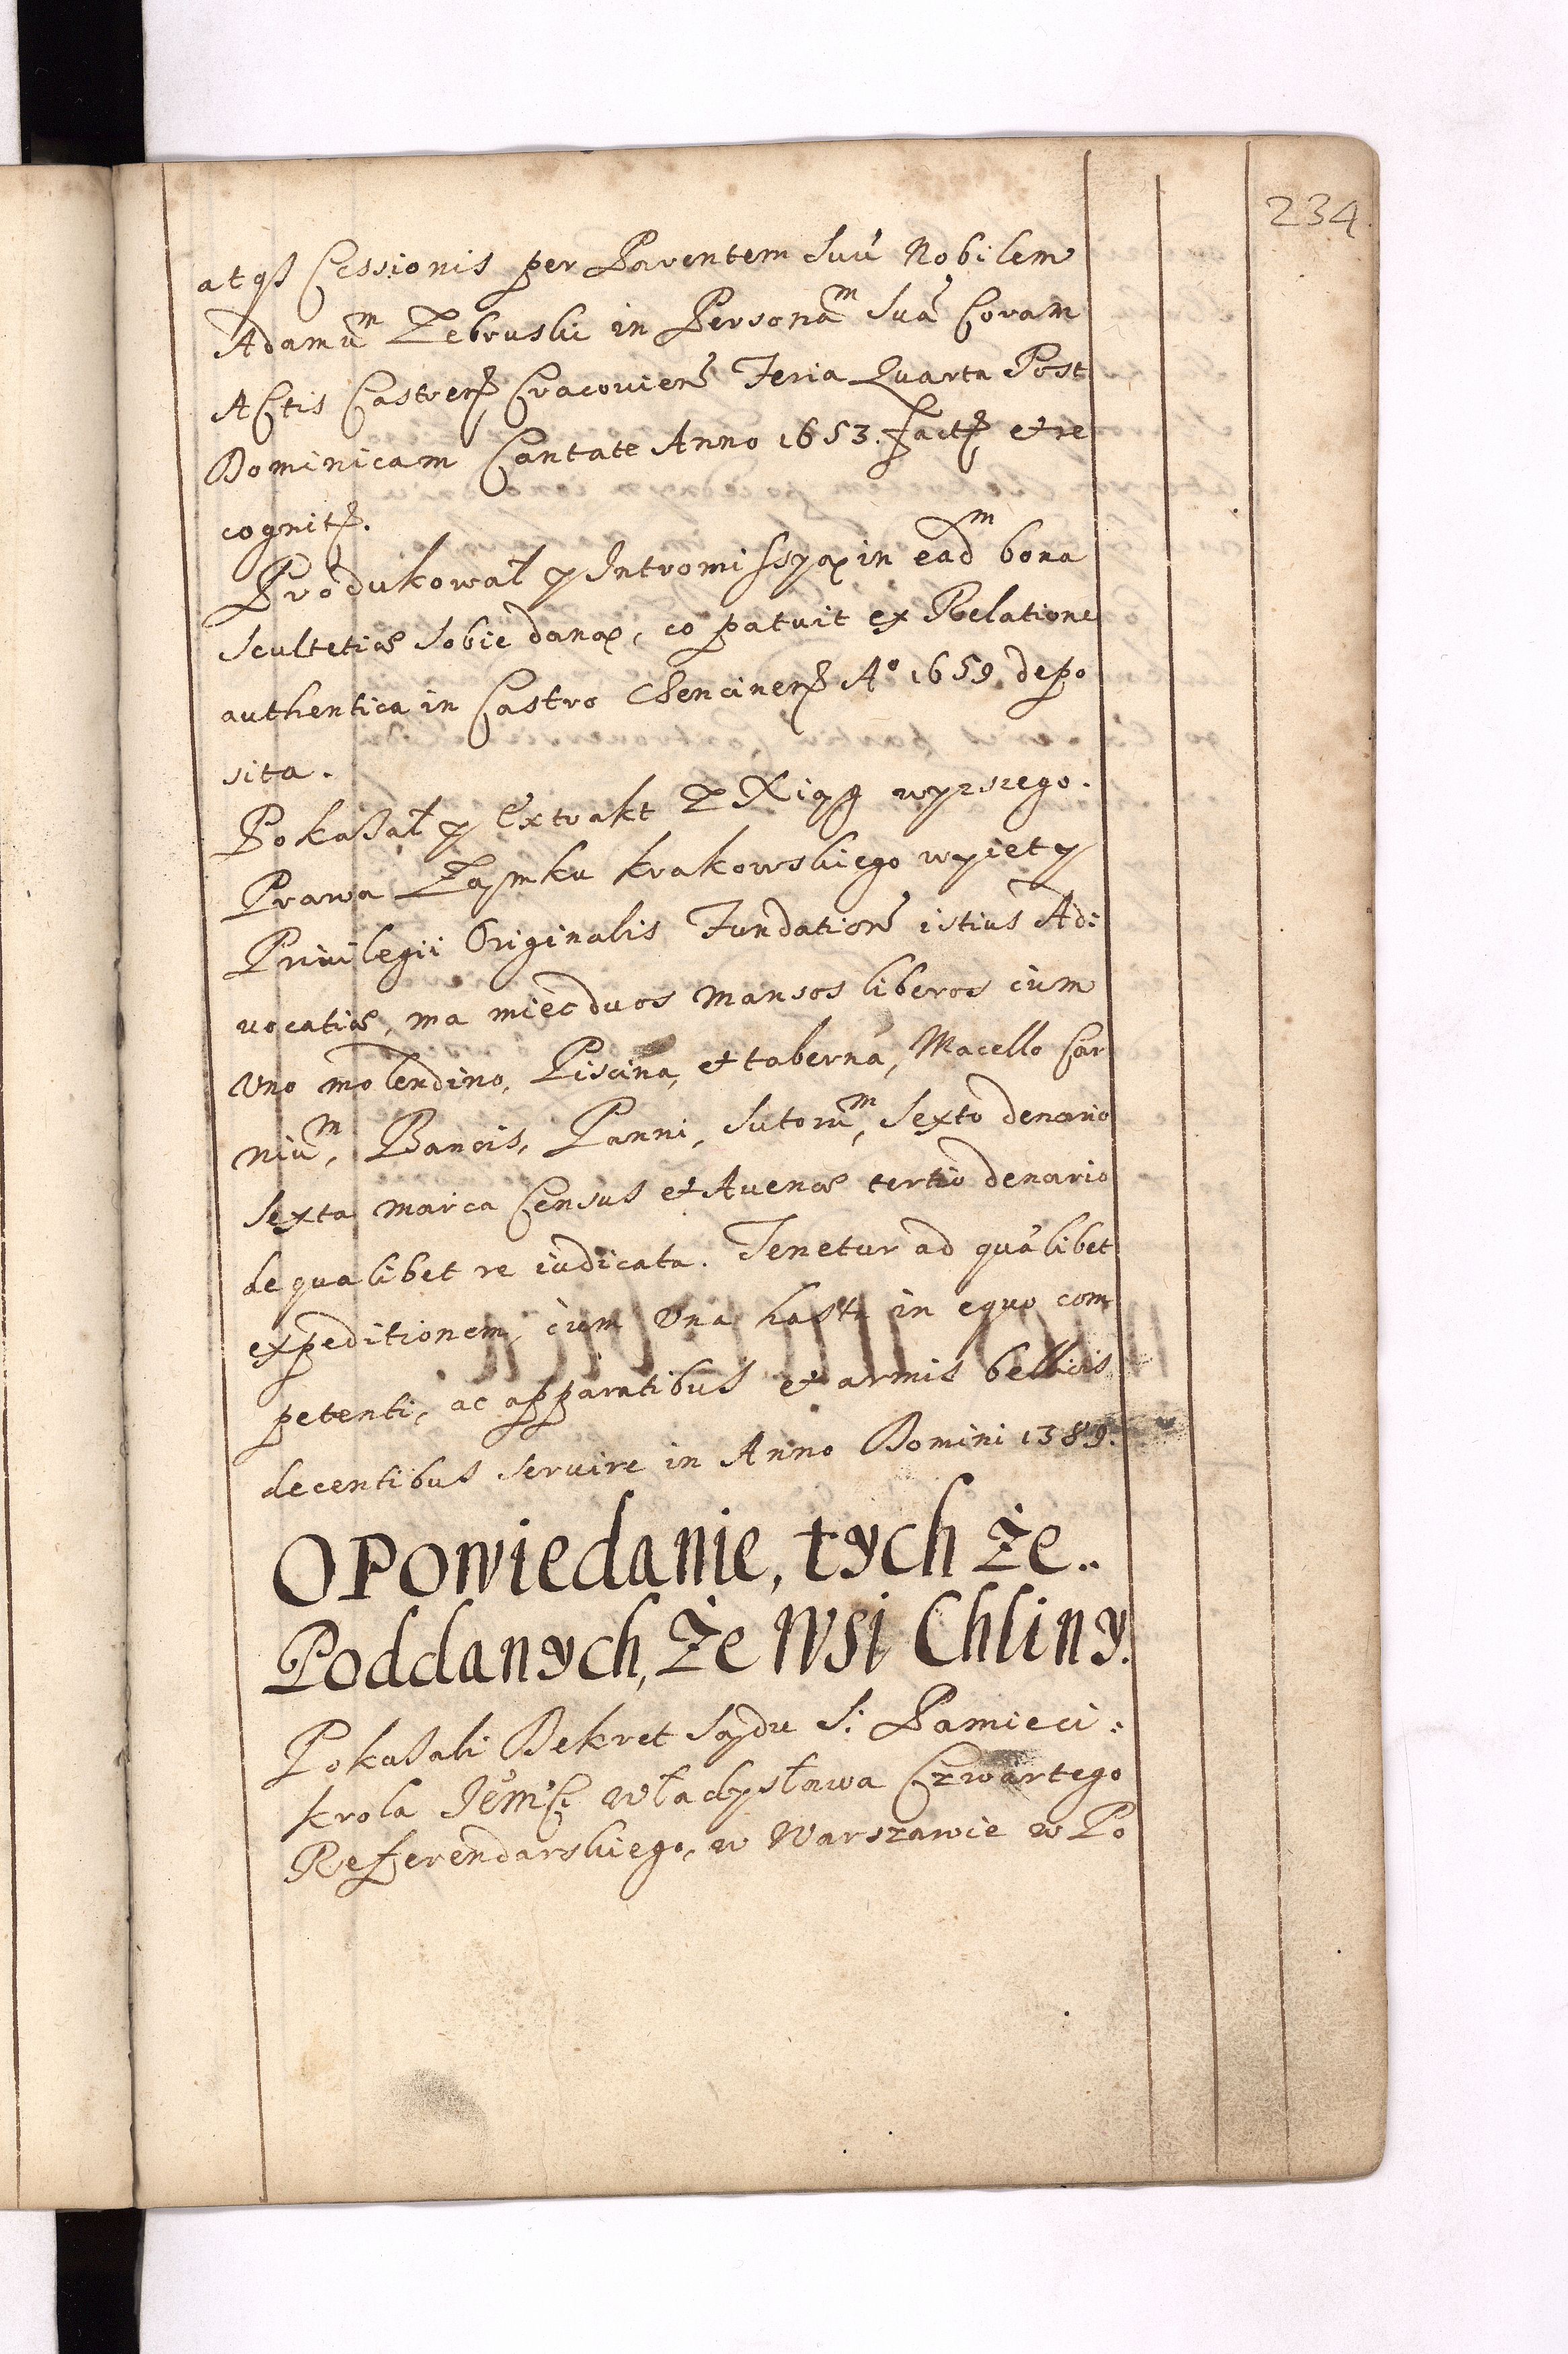 234
atqs Cessionis per Parentem suú Nobilem
Adamūm Zebruski in Personām suá Coram
Actis Castrens Cracouiens Feria Quarta Post
Dominicam Cantate Anno 1653. fact et re
cognit.
Produkował y Intromissyą in eadm bona
Scultetiæ sobie daną, co patuit ex Relatione
authentica in Castro Chencinens Aº 1659 depo
sita.
Pokazał y Extrakt z Xiąg wyzszego.
Prawa Zamku krakowskiego wyięty
Priuilegii Originalis Fundations istius Ad:
uocatiæ, ma miec duos mansos liberos cum
Vno molendino, Piscina, et taberná, Macello Car
niūm, Bancis, Panni, sutorūm, sexto denario
sexta marca Census et Auenæ tertio denario
de qualibet re iudicata. Tenetur ad quálibet
expeditionem, cum Vna hasta in equo com
petenti, ac apparatibus et armis bellicis
decentibus seruire in Anno Domini 1389.
Opowiedanie, tych że..
Poddanych, że wsi Chliny.
Pokazali Dekret Sądu S: Pamieci:
krola Jemści władysława Czwartego
Referendarskiego, w Warszawie w Po